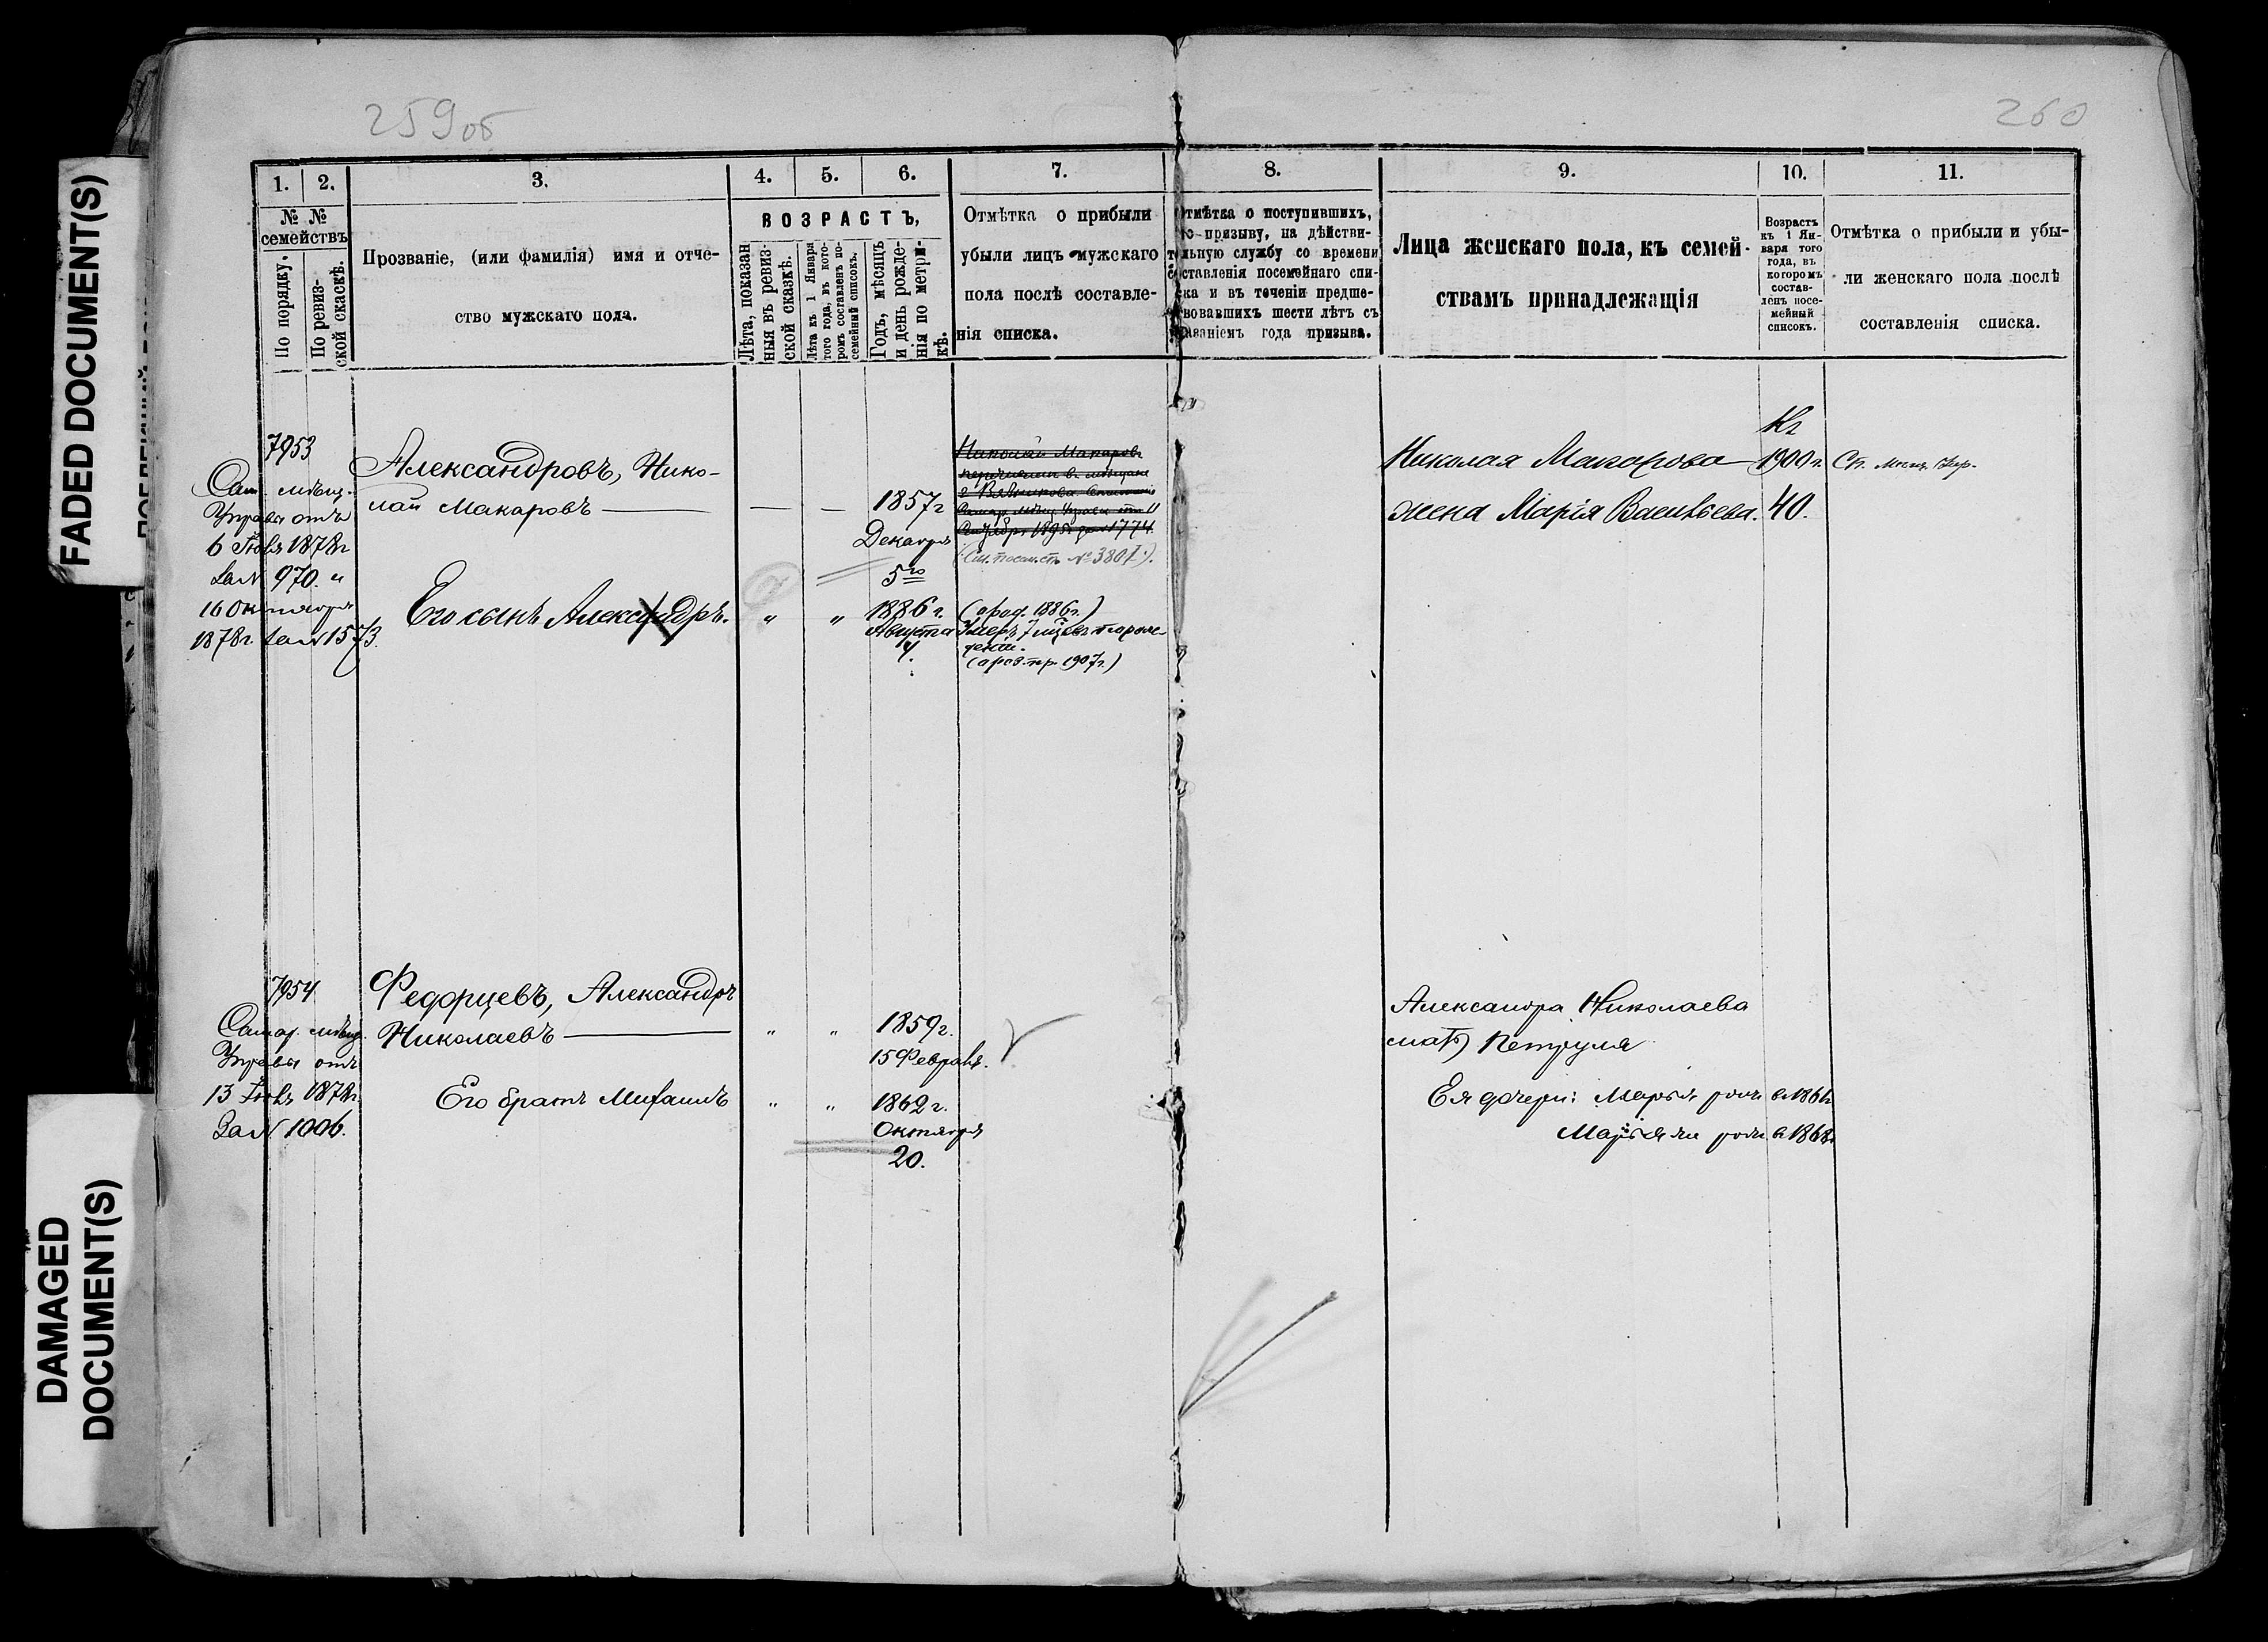 FADED DOCUMENT(S)
DAMAGED
DOCUMENT(S)
259об
260
1.
2.
3.
4.
5.
6.
7.
8.
9.
10.
11.
№ №
семействъ
По порядку.
По ревиз-
ской скаскѣ.
Прозваніе, (или фамилія) имя и отче-
ство мужскаго пола.
ВОЗРАСТЪ,
Лѣта, показан
ныя въ ревиз-
ской сказкѣ.
Лѣта къ 1 Января
того года, въ кото-
ромъ составленъ по-
семейный списокъ.
Годъ, мѣсяцъ
и день рожде-
нія по метри-
кѣ.
Отмѣтка о прибыли
убыли лицъ мужскаго
пола послѣ составле-
нія списка.
тмѣтка о поступившихъ,
призыву, на дѣйстви-
тельную службу со времени
составленія посемейнаго спи-
ска и въ теченіи предше-
ствовавшихъ шести лѣтъ съ
азаніемъ года призыва.
Лица женскаго пола, къ семей-
ствамъ принадлежащія
Возрастъ
къ 1 Ян-
варя того
года, въ
которомъ
состав-
ленъ посе-
мейный
списокъ.
Отмѣтка о прибыли и убы-
ли женскаго пола послѣ
составленія списка.
7953
Сам. мѣщ.
Управы отъ
6 Іюля 1878г
за № 970. и
16 Октября
1878г. за № 1573.
Александровъ, Нико-
лай Макаровъ
1857г
Декабря
5го
Николай Макаровъ
перечисленъ въ мѣщане
Самар. мѣщ. Управы отъ 11
Сентября 1895г за № 1774.
(См. посем. сп. № 3801.)
Его сынъ Александръ.
" "
1886 г.
Августа
4.
(ород. 1886г.)
Умеръ 7 мѣ
(о
пр. 1907г.)
Николая Макарова
жена Марія Васильева.
Къ
1900г.
40.
Сп. Мѣщ. Упр.
7954
Самар. мѣщ.
Управы отъ
13 Іюля 1878г.
За № 1006.
Федорцевъ, Александръ
Николаевъ
" "
1859г.
15 Февраля.
Его братъ Михаилъ
" "
1862 г.
Октября
20.
Александра Николаева
мать
Ея дочери: Марья родил. въ 1866г
родил. въ 1868г.